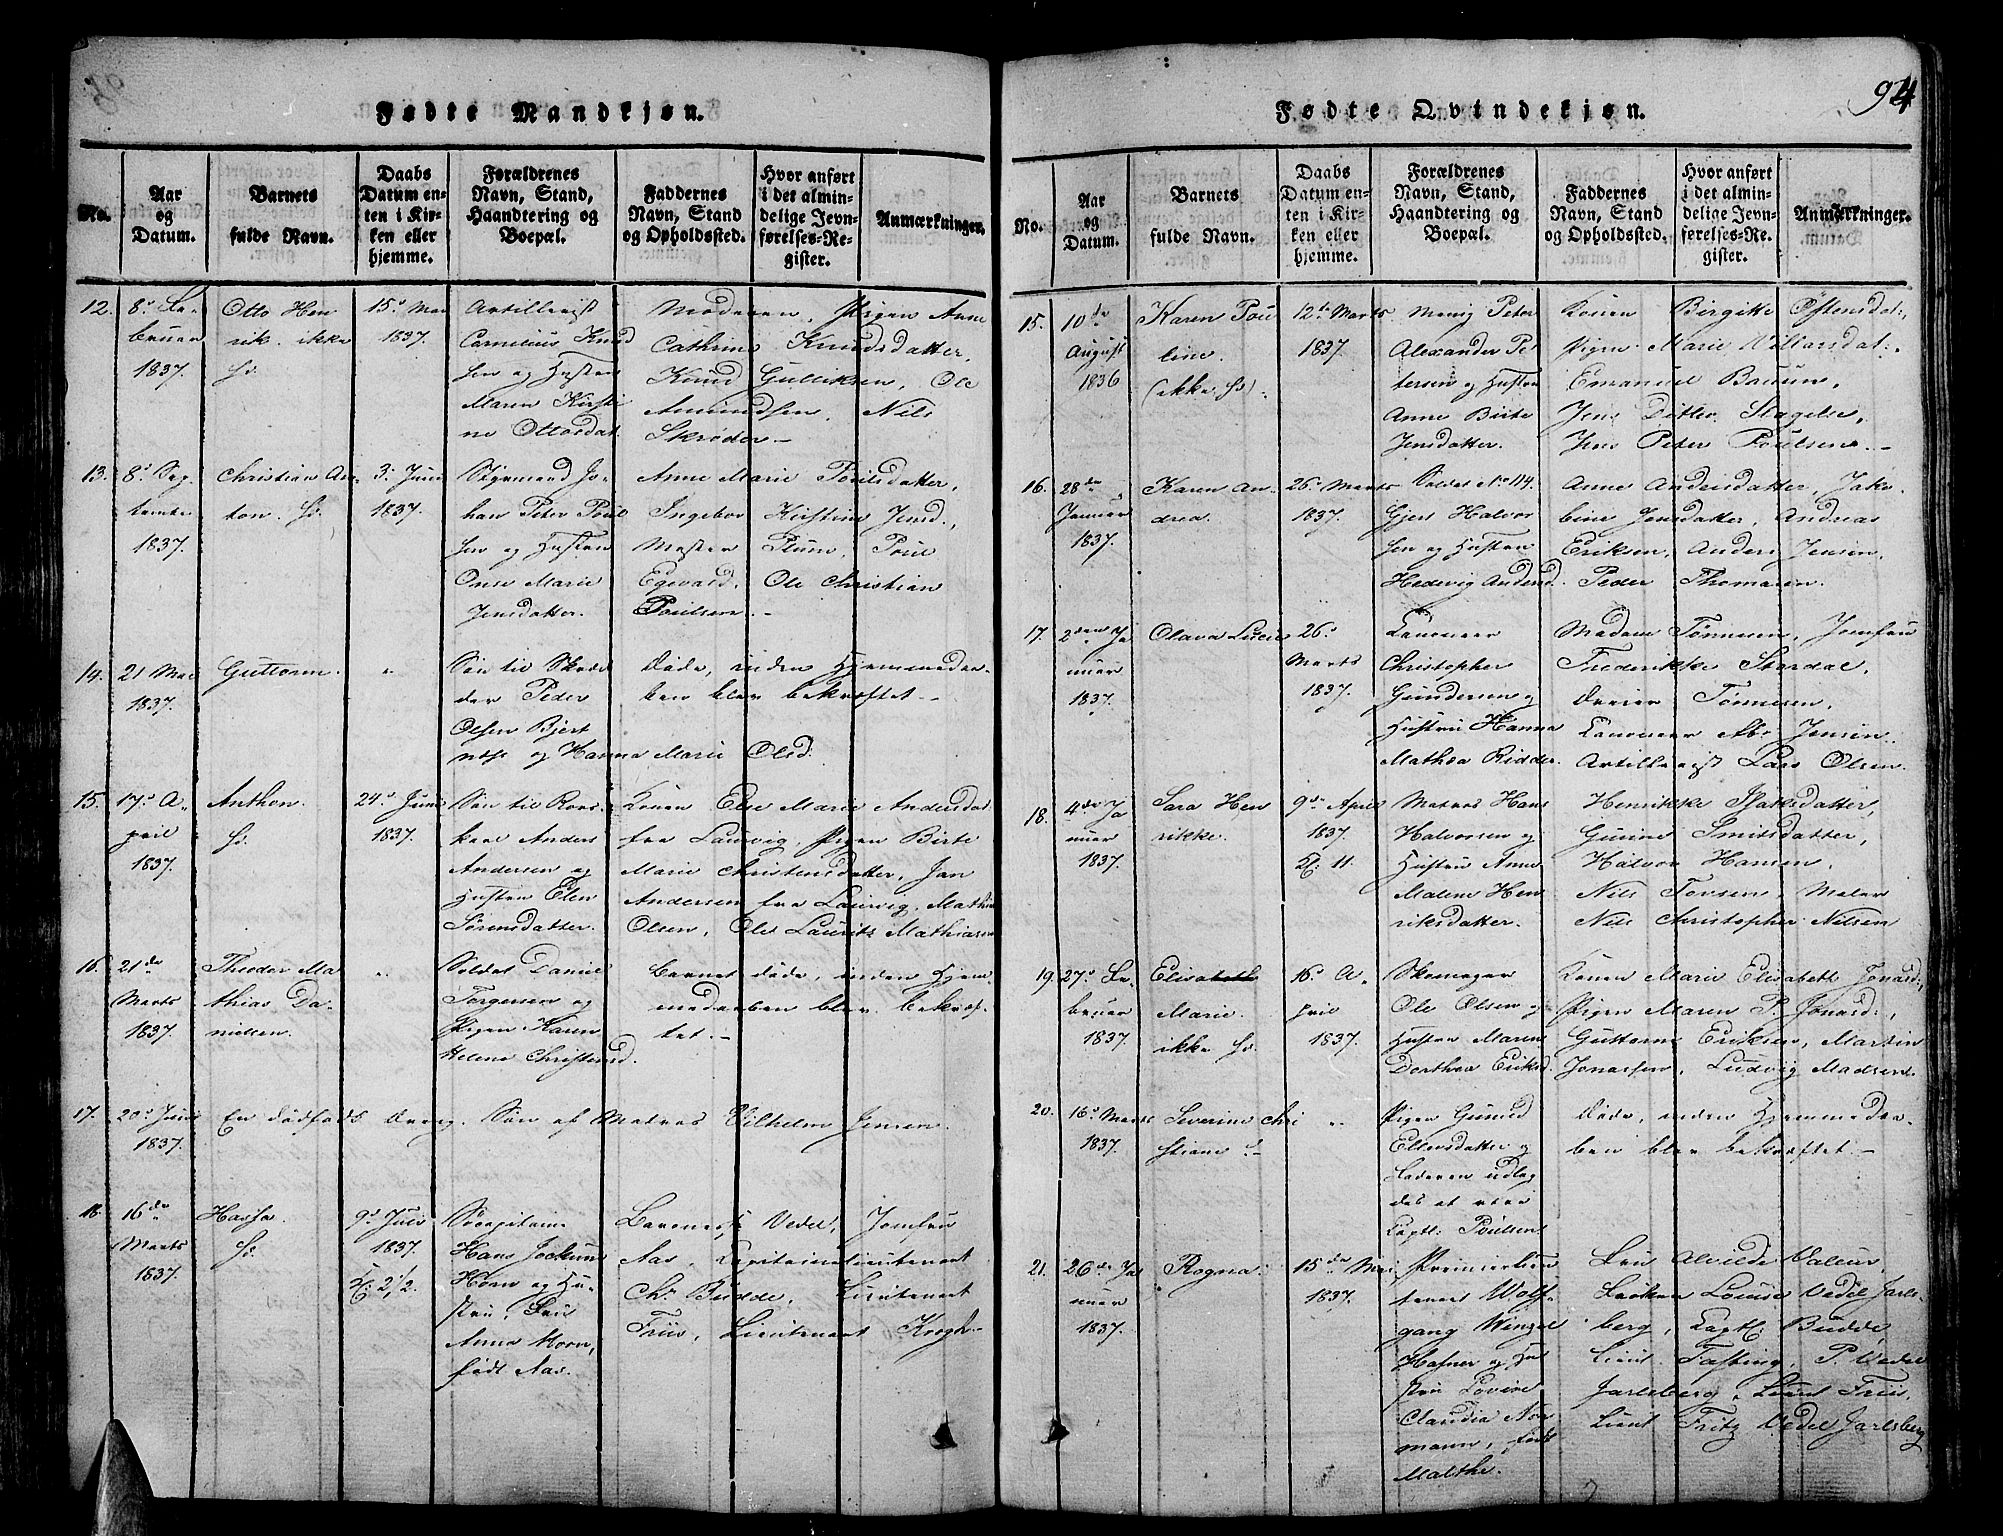 94
Fødte Mandkjøn.
No.
Aar
og
Datum.
Barnets
fulde Navn.
Daabs
Datum en-
ten i Kir-
ken eller
hjemme.
Forældrenes
Navn, Stand,
Haandtering og
Boepæl.
Faddernes
Navn, Stand
og Opholdssted.
Hvor anført
i det almin-
delige Jevn-
førelses-Re-
gister.
Anmærkninger.
12.
8de Fe-
bruar
1837.
Otto Hen
rik. ikke
hd.
15de Mai
1837.
Artillerist
Cornelius Knud
sen og Hustru
Maren Kirsti
ne Ottosdat.
Moderen, Pigen Anne
Cathrine Knudsdatter,
Knud Gulliksen, Ole
Amundsen, Nils
Skrøder.
13.
8de Sep
tembr
1837.
Christian An-
ton. hd.
3. Juni
1837.
Styrmand Jo-
han Peter Poul
sen og Hustru
Anne Marie
Jensdatter.
Anne Marie Poulsdatter,
Ingebor Kirstine Jensd.,
Morten Plum, Poul
Egevald, Ole Christian
Poulsen.
14.
21 Mai
1837.
Guttorm.
"
Søn til Skræd
der Peder
Olsen Bjert
næs og Hanna Marie Olsd.
døde, inden Hjemmedaa-
ben blev bekræftet.
15.
17de A-
pril
1837.
Anthon.
hd.
24de Juni
1837.
Søn til Rors-
karl Anders
Andersen og
Hustru Elen
Sørensdatter.
Konen Else Marie Andersdat.
fra Laurvig, Pigen Birte
Marie Christensdatter, Jan
Andersen fra Laurvig, Mathias
Olsen, Ole Laurits Mathiasen
16.
21de
Marts
1837.
Theodor Ma
thias Da-
nielsen.
"
Soldat Daniel
Torgersen og
Pigen Karen
Helene Christensd.
Barnet døde, inden Hjem
medaaben blev bekræf-
tet.
17.
20de Juni
1837.
En dødfødt dreng. Søn af Matros Vilhelm Jensen.
18.
16de
Marts
1837.
hd.
9de Juli
1837.
Kl: 2½.
Søcapitaine
Hans Jockum
Horn og Hu-
stru, Fru
Anna Horn,
født Aas.
Baronesse Vedel, Jomfru
Aas, Capitainelieutenant
Chr. Budde, Lieutenant
Friis, Lieutenant Krogh.
Fødte Qvindekjøn.
No.
Aar
og
Datum.
Barnets
fulde Navn.
Daabs
Datum en-
ten i Kir-
ken eller
hjemme.
Forældrenes
Navn, Stand,
Haandtering og
Boepæl.
Faddernes
Navn, Stand
og Opholdssted.
Hvor anført
i det almin-
delige Jevn-
førelses-Re-
gister.
Anmærkninger.
15.
10de
August
1836
Karen Pou
line.
(ikke hd).
12te Marts
1837.
Menig Peter
Alexander Pe
tersen og Hustru
Anne Birte
Jensdatter.
Konen Birgitte Østensdat.,
Pigen Marie Villarsdat.,
Emanuel Bauun,
Jens Ditlev Slagelse,
Jens Peter Poulsen.
16.
28de
Januar
1837.
Karen An-
drea.
26de Marts
1837.
Soldat No 114.
Gjert Halvor
sen og Hustru
Hedevig Andersd.
Anne Andersdatter, Jako
bine Jensdatter, Andreas
Eriksen, Anders Jensen,
Peder Thomasen.
17.
2den Ja
nuar
1837.
Olava Lucie
26de
Marts
1837.
Canoneer
Christopher
Gundersen og
Hustru Hanna
Mathea Ridder.
Madam Tønnesen, Jomfru
Frederikke Stordal,
Dreier Tønnesen,
Canoneer Abr. Jensen,
Artillerist Lars Olsen.
18.
4de Ja
nuar
1837.
Sara Hen
rikke.
9de April
1837.
Kl: 11.
Matros Hans
Halvorsen og
Hustru Anne
Malene Hen
riksdatter.
Henrikke Slaksdatter,
Gurine Smitsdatter,
Halvor Hansen,
Nils Torsen, Maler
Nils Christopher Nilsen
19.
27de Fe-
bruar
1837.
Elisabeth
Marie.
ikke hd.
16de A-
pril
1837.
Skomager
Ole Olsen og
Hustru Maren
Dorthea Eriksd.
Konen Marie Elisabeth Jonasd.,
Pigen Maren P. Jonasd.,
Guttorm Eriksen, Martin
Jonassen, Ludvig Madsen.
20.
16de Marts
1837.
Severine Chri
stiane
"
Pigen Gunild
Ellensdatter og
Faderen udlag
des at være
Captl. Poulsen
døde, inden Hjemmedaa
ben blev bekræftet.
21.
26de Ja
nuar
1837.
Rogna.
15de Mai
1837.
Premierlieu
tenant Wolf-
gang Winzel
Hafner og Hu
stru Lovise
Claudia Nor
mann, født
Malthe.
Fru Alvilde Valeur,
Frøken Louise Vedel Jarls-
berg, Captl. Budde,
Lieut. Fasting, P. Vedel
Jarlsberg, Lieut Friis,
Lieut Fritz Vedel Jarlsberg